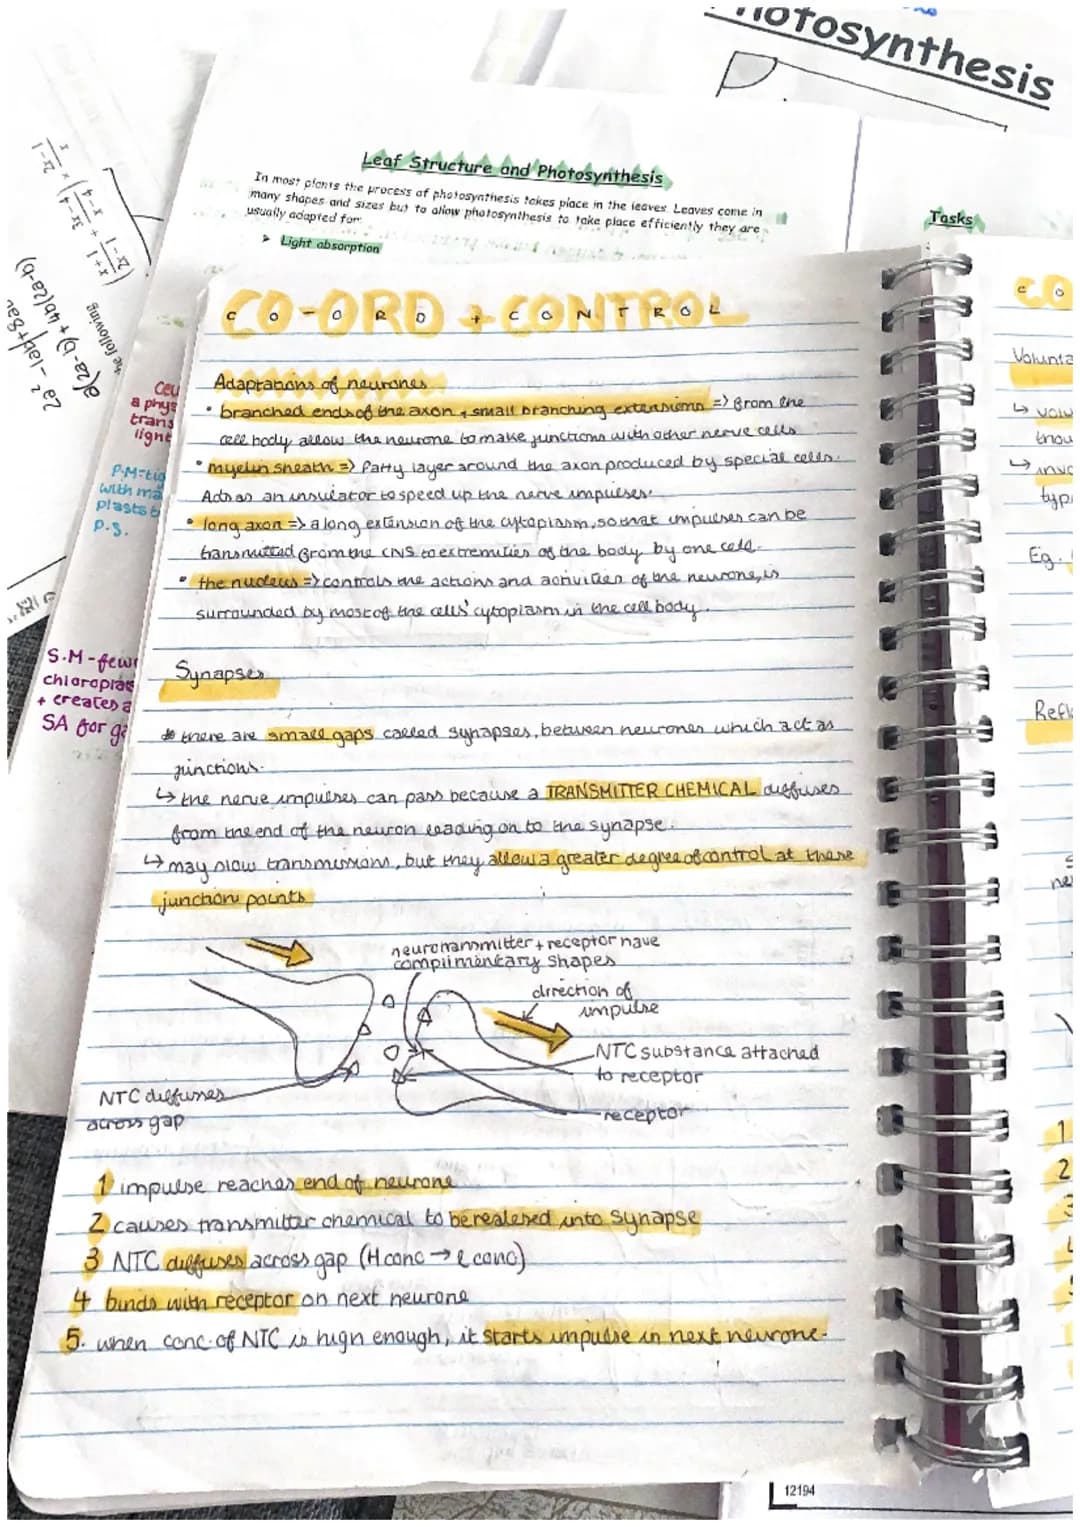 Photosynthesis
Leaf Structure and Photosynthesis
In most plants the process of photosynthesis takes place in the leaves. Leaves come in
many shapes and sizes but to allow photosynthesis to take place efficiently they are
usually adapted for:
➤ Light absorption
Tasks
the following
P.S.
S.M - few
+ creates a
SA for
CO-ORD + CONTROL
Adaptations of neurones
• branched ends of the axon + small branching extensions => from the
cell body allow the neurone to make junctions with other nerve cells
• myelin sheath => fatty layer around the axon produced by special cells.
Acts as an insulator to speed up the nerve impulses.
• long axon => a long extension of the cytoplasm, so that impulses can be
transmitted from the CNS to extremities of the body by one cell.
• the nucleus => controls the actions and activities of the neurone, is
surrounded by most of the cells' cytoplasm in the cell body.
Synapses
* there are small gaps called synapses, between neurones which act as
junctions.
↳ the nerve impulses can pass because a TRANSMITTER CHEMICAL diffuses
from the end of the neuron leading on to the synapse.
↳ may slow transmissions, but they allow a greater degree of control at these
junction points
neurotransmitter + receptor have
complimentary shapes
direction of
impulse
NTC substance attached
to receptor
receptor
NTC diffuses
across gap
1 impulse reaches end of neurone
2 causes transmitter chemical to be realesed into synapse
3 NTC diffuses across gap (H conc → l conc)
4 binds with receptor on next neurone
5. when conc. of NTC is high enough, it starts impulse in next neurone.
CO
Eg.
1
2
3
12194